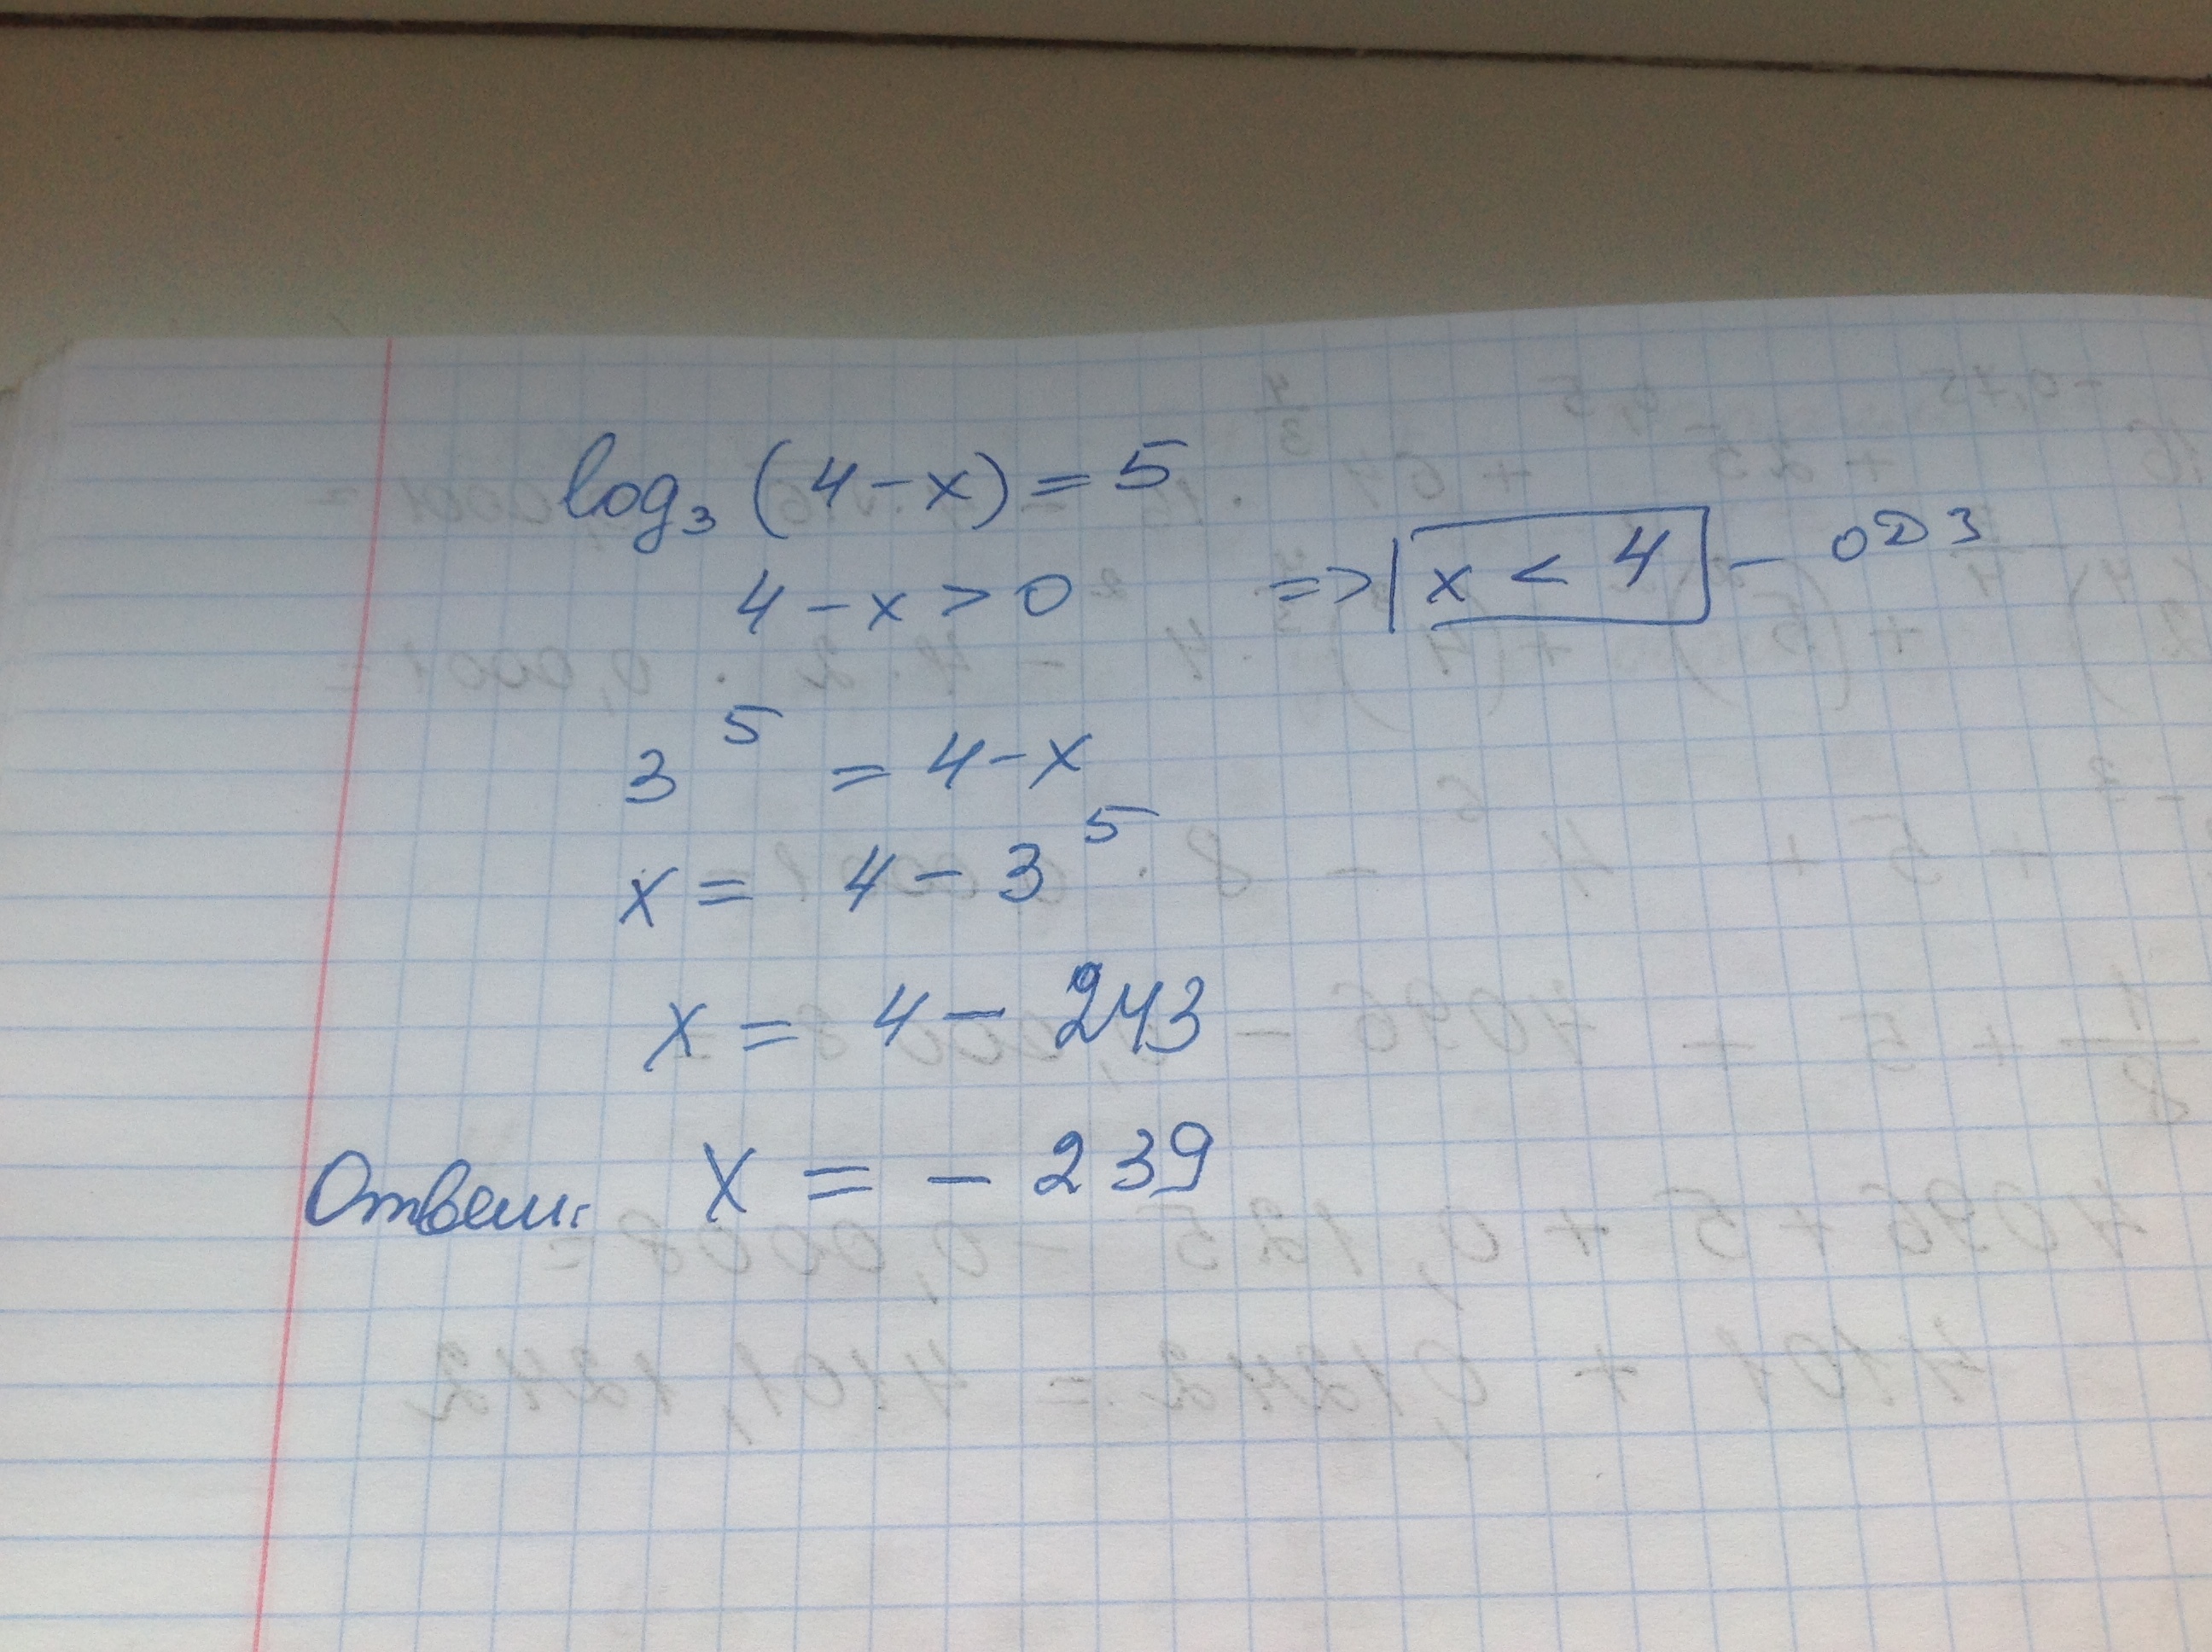 log₃ (4-x) = 5
4 - x > 0 => |x < 4| - ОДЗ
3⁵ = 4-x
x = 4 - 3⁵
x = 4 - 243
Ответ: x = - 239